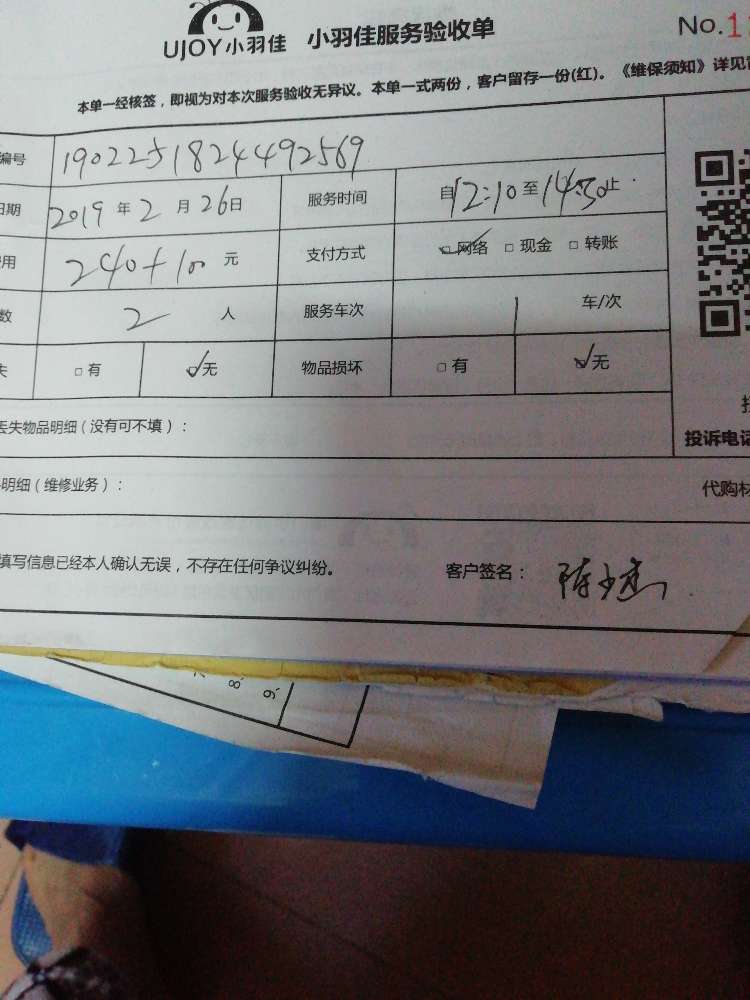 UJOY小羽佳 小羽佳服务验收单 No.1
本单一经核签，即视为对本次服务验收无异议。本单一式两份，客户留存一份(红)。《维保须知》详见
编号 1902251824492569
日期 2019 年 2 月 26 日 服务时间 自 12:10 至 14:30 止
用 240+100 元 支付方式 ☑网络 □现金 □转账
数 2 人 服务车次 1 车/次
失 □有 ☑无 物品损坏 □有 ☑无
丢失物品明细（没有可不填）：
投诉电话
明细（维修业务）： 代购材
填写信息已经本人确认无误，不存在任何争议纠纷。 客户签名：
8、
9、